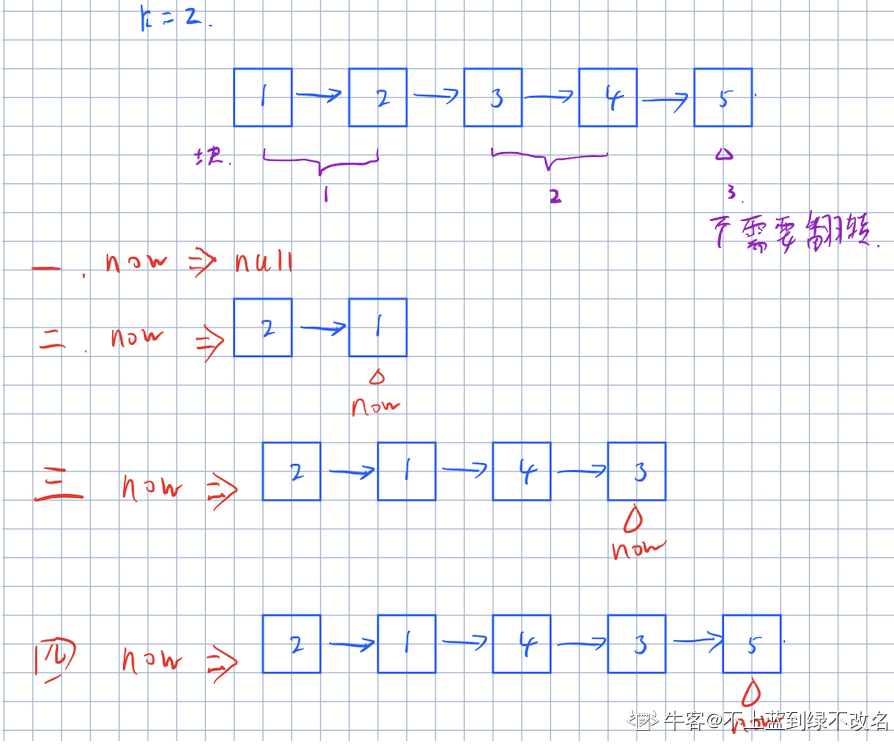 k = 2.
1 → 2 → 3 → 4 → 5
块.
1 2 3.
不需要翻转.
一. now ⇒ null
二. now ⇒ 2 → 1
now
三 now ⇒ 2 → 1 → 4 → 3
now
四 now ⇒ 2 → 1 → 4 → 3 → 5
now
牛客@不上蓝到绿不改名